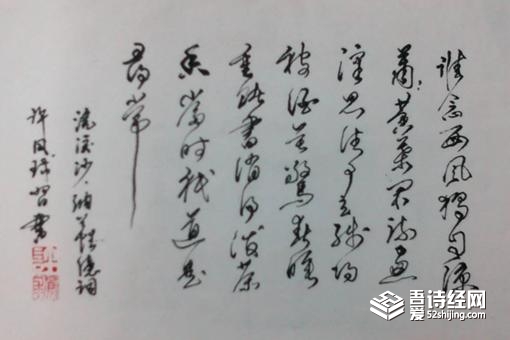 谁念西风独自凉
萧萧黄叶闭疏窗
沉思往事立残阳
被酒莫惊春睡
重赌书消得泼茶
香当时只道是
寻常
浣溪沙·纳兰性德词
许 习书
吾爱诗经网
52shijing.com